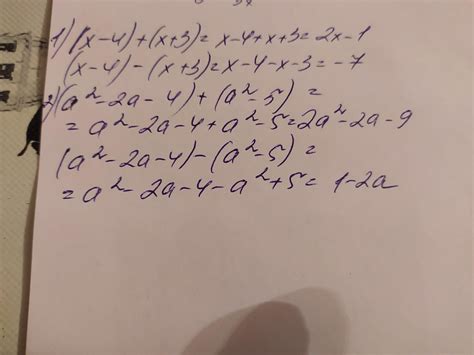 1) (x-4)+(x+3)= x-4+x+3=2x-1
(x-4)-(x+3)=x-4-x-3=-7
2)(a²-2a-4)+(a²-5)=
=a²-2a-4+a²-5=2a²-2a-9
(a²-2a-4)-(a²-5)=
=a²-2a-4-a²+5= 1-2a